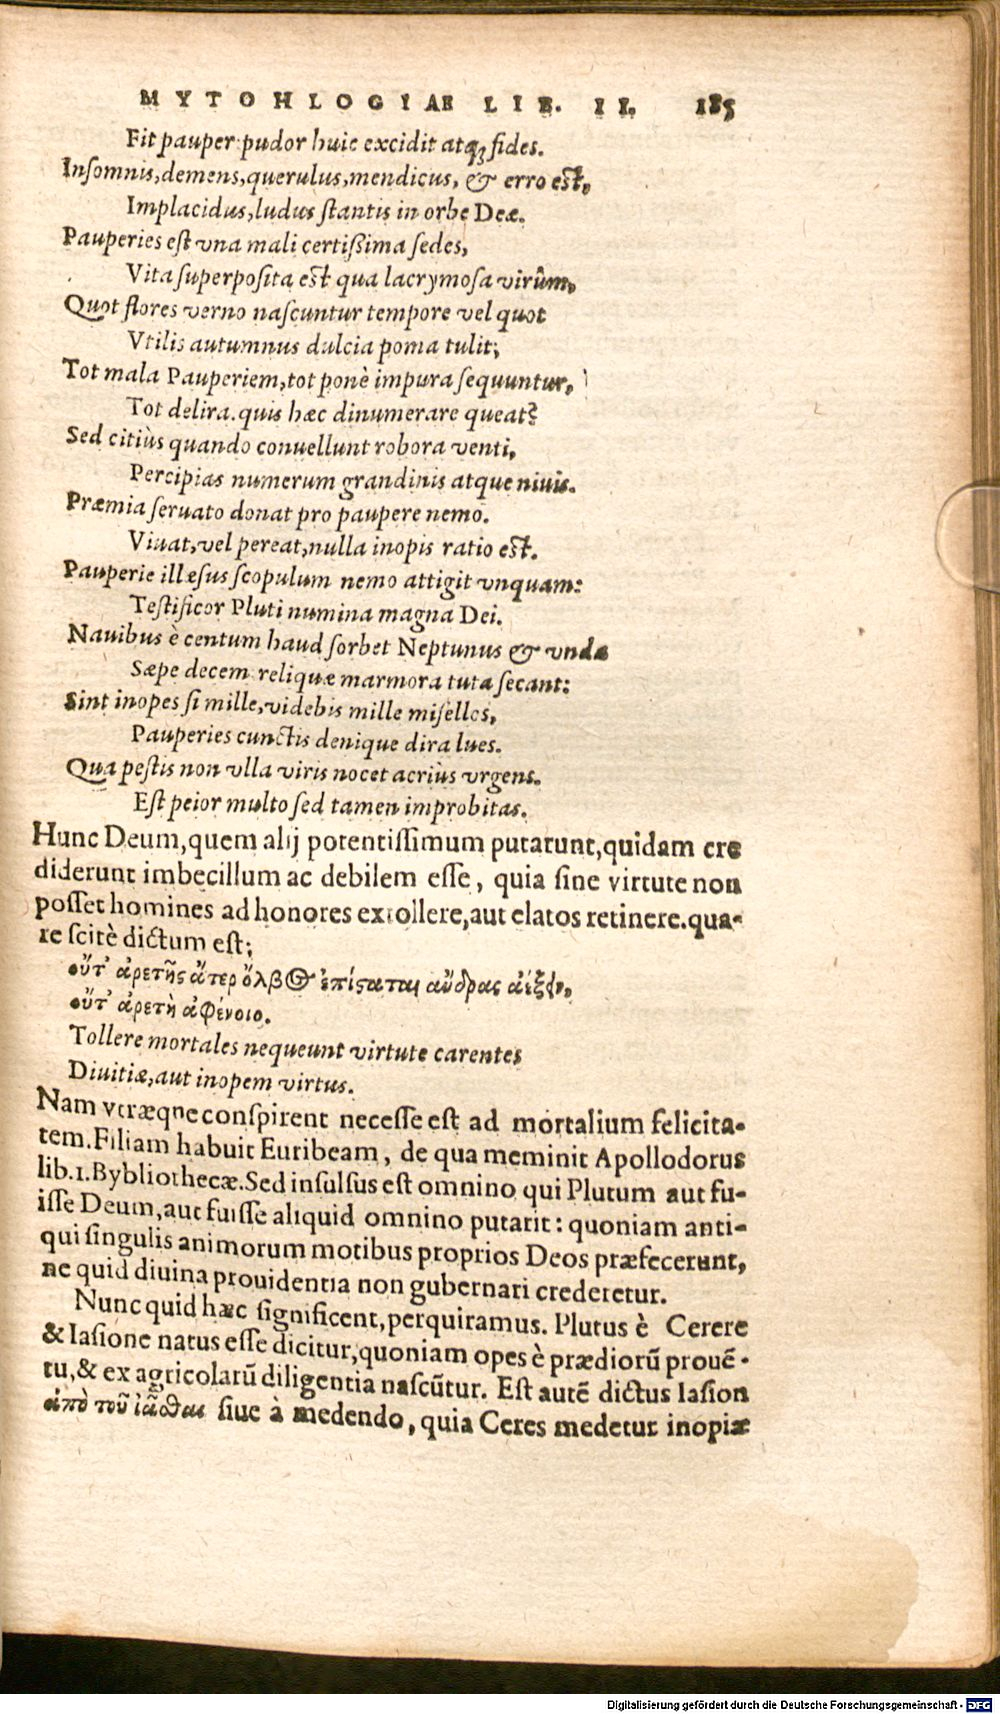 MYTOHLOGIAE LIB. II. 185
Fit pauper pudor huic excidit atq; fides.
Insomnis, demens, querulus, mendicus, & erro est,
Implacidus, ludus stantis in orbe Deæ.
Pauperies est vna mali certißima sedes,
Vita superposita est qua lacrymosa virûm,
Quot flores verno nascuntur tempore vel quot
Vtilis autumnus dulcia poma tulit;
Tot mala Pauperiem, tot ponè impura sequuntur,
Tot delira. quis hæc dinumerare queat?
Sed citiùs quando conuellunt robora venti,
Percipias numerum grandinis atque niuis.
Præmia seruato donat pro paupere nemo.
Viuat, vel pereat, nulla inopis ratio est.
Pauperie illæsus scopulum nemo attigit vnquam:
Testificor Pluti numina magna Dei.
Nauibus è centum haud sorbet Neptunus & vndæ
Sæpe decem. reliquæ marmora tuta secant:
Sint inopes si mille, videbis mille misellos,
Pauperies cunctis denique dira lues.
Qua pestis non vlla viris nocet acriùs vrgens.
Est peior multo sed tamen improbitas.
Hunc Deum, quem alij potentissimum putarunt, quidam cre
diderunt imbecillum ac debilem esse, quia sine virtute non
posset homines ad honores extollere, aut elatos retinere. qua-
re scitè dictum est;
οὔτ' ἀρετῆς ἄτερ ὄλβος ἐπίσαται ἄνδρας ἀέξειν,
οὔτ' ἀρετὴ ἀφένοιο.
Tollere mortales nequeunt virtute carentes
Diuitiæ, aut inopem virtus.
Nam vtræque conspirent necesse est ad mortalium felicita-
tem. Filiam habuit Euribeam, de qua meminit Apollodorus
lib. 1. Bybliothecæ. Sed insulsus est omnino qui Plutum aut fu-
isse Deum, aut fuisse aliquid omnino putarit: quoniam anti-
qui singulis animorum motibus proprios Deos præfecerunt,
ne quid diuina prouidentia non gubernari crederetur.
Nunc quid hæc significent, perquiramus. Plutus è Cerere
& Iasione natus esse dicitur, quoniam opes è prædiorũ prouē-
tu, & ex agricolarũ diligentia nascũtur. Est autē dictus Iasion
ἀπὸ τοῦ ἰᾶσθαι siue à medendo, quia Ceres medetur inopiæ
Digitalisierung gefördert durch die Deutsche Forschungsgemeinschaft - DFG